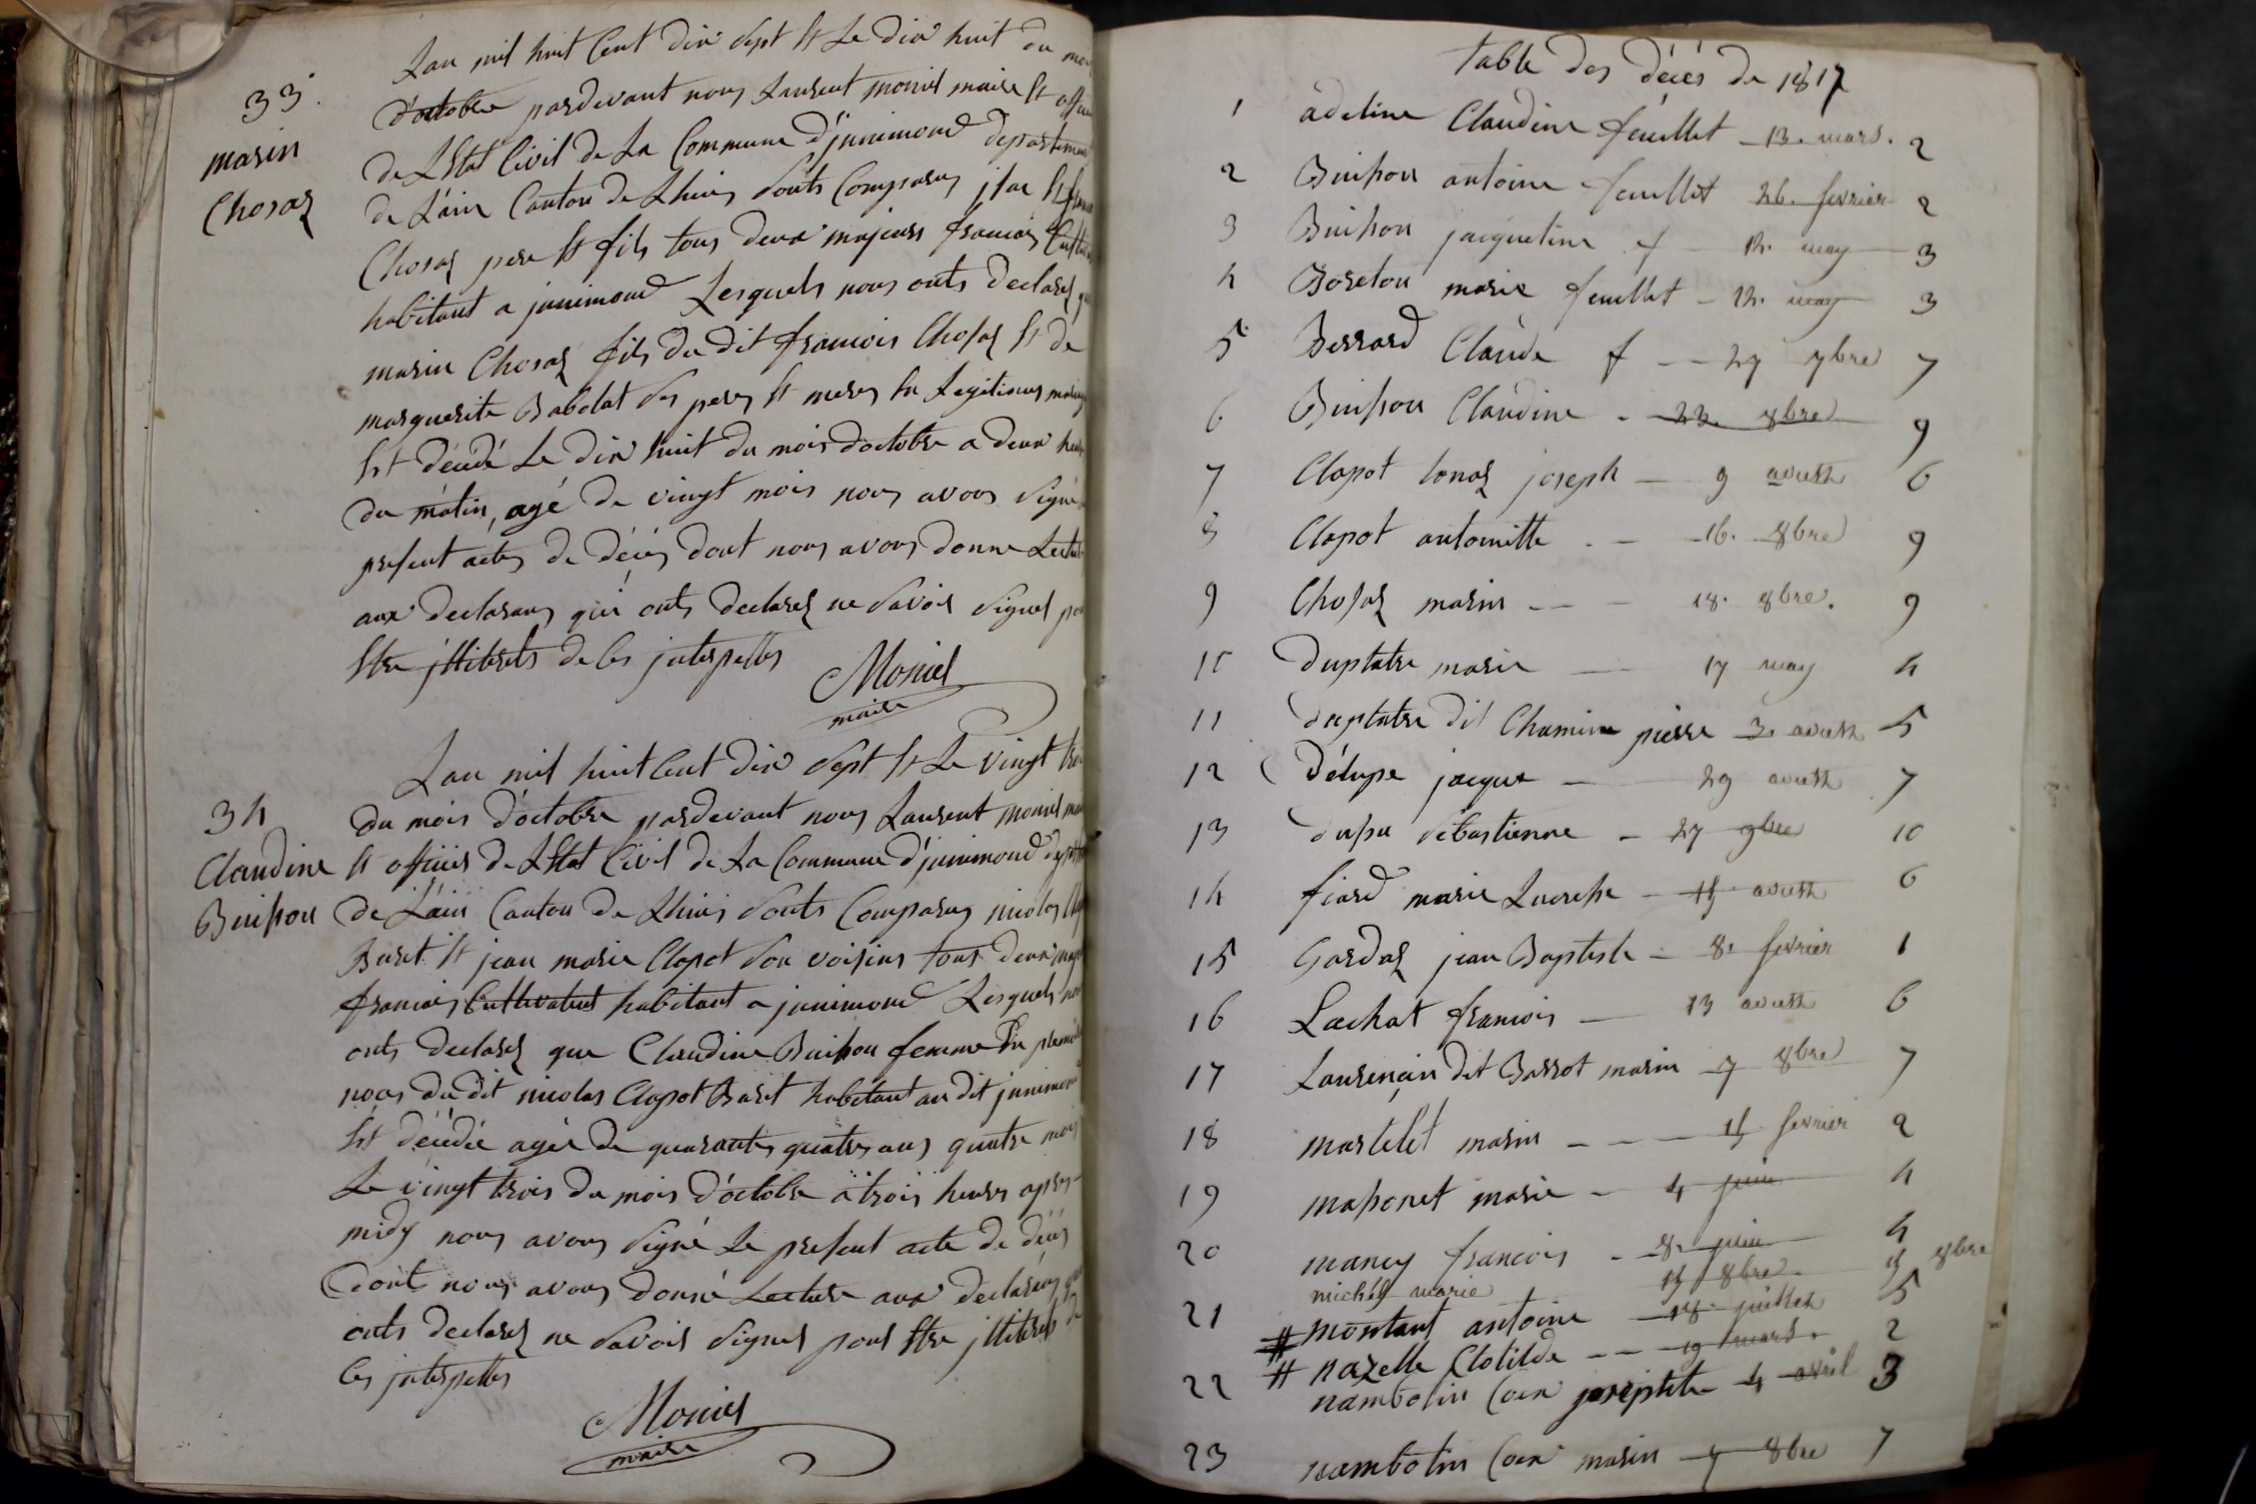 33.
marin
Chosaz
Lan mil huit Cent dix Sept Et Le dix huit du
d'octobre pardevant nous Laurent moniel maire Et
de LEtat Civil de La Commune d'junimond departement
de L'ain Canton de Lhuis Sonts Comparus
Chosaz pere Et fils tous deux majeurs francois
habitant a junimond Lesquels nous onts declarez
marin Chosaz fils du dit francois Chosaz Et de
marguerite Babolat Ses peres Et meres En Legitimes
Est décédé Le dix huit du mois d'octobre a deux
du mátin, agé de vingt mois nous avons Signé
present actes de décès dont nous avons donne
aux declarans qui onts declarez ne Savoir Signer
Etre jlliterets de les interpelles
Moniel
maire
34
Claudine
Buisson
Lan mil huit Cent dix Sept Et Le vingt
du mois d'octobre pardevant nous Laurent moniel
Et officier de LEtat Civil de La Commune d'junimond
de L'ain Canton de Lhuis Sonts Comparus nicolas
Buret Et jean marie Clapot Son voisins tous deux
francois Cultivateurs habitant a junimond Lesquels
onts declarez que Claudine Buisson femme
du dit nicolas Clapot Baret habitant au dit
Est décédée agée de quarantes quatres ans quatre mois
Le vingt trois du mois d'octobre a trois heures apres
midy nous avons Signé Le present acte de décès
dont nous avons donné Lecture aux declarans
onts declarez ne Savoir Signer pour Etre jlliterets
les interpelles
Moniel
maire
table des décès de 1817
1 adeline Claudine feuillet 13. mars. 2
2 Buisson antoine feuillet 26. fevrier 2
3 Buisson jacqueline f 12. may 3
4 Borelon marie feuillet 12. may 3
5 Berrard Claude f 27 7bre 7
6 Buisson Claudine 23. 8bre 9
7 Clapot tonaz joseph 9 aoust 6
8 Clapot antoinette 16. 8bre 9
9 Chosaz marin 18. 8bre. 9
10 duplatre marie 17 may 4
11 duplatre dit Chamine pierre 3. aoust 5
12 délupe jacque 29 aoust 7
13 dupu sébastienne 27 9bre 10
14 fiard marie Lucresse 15 aoust 6
15 Gardaz jean Baptiste 8. fevrier 1
16 Lachat francois 13 aoust 6
17 Laurençin dit Barrot marin 7 8bre 7
18 martelet marin 15 fevrier 2
19 massonet marie 4 juin 4
20 mancy francois 8. juin 4
michel marie 15 8bre. 15 8bre
21 # montant antoine 18. juillet 5
# nazelle Clotilde 19 mars. 2
22 nambotin Coux josephte 4 avril 3
23 nambotin Coux marin 7 8bre 7